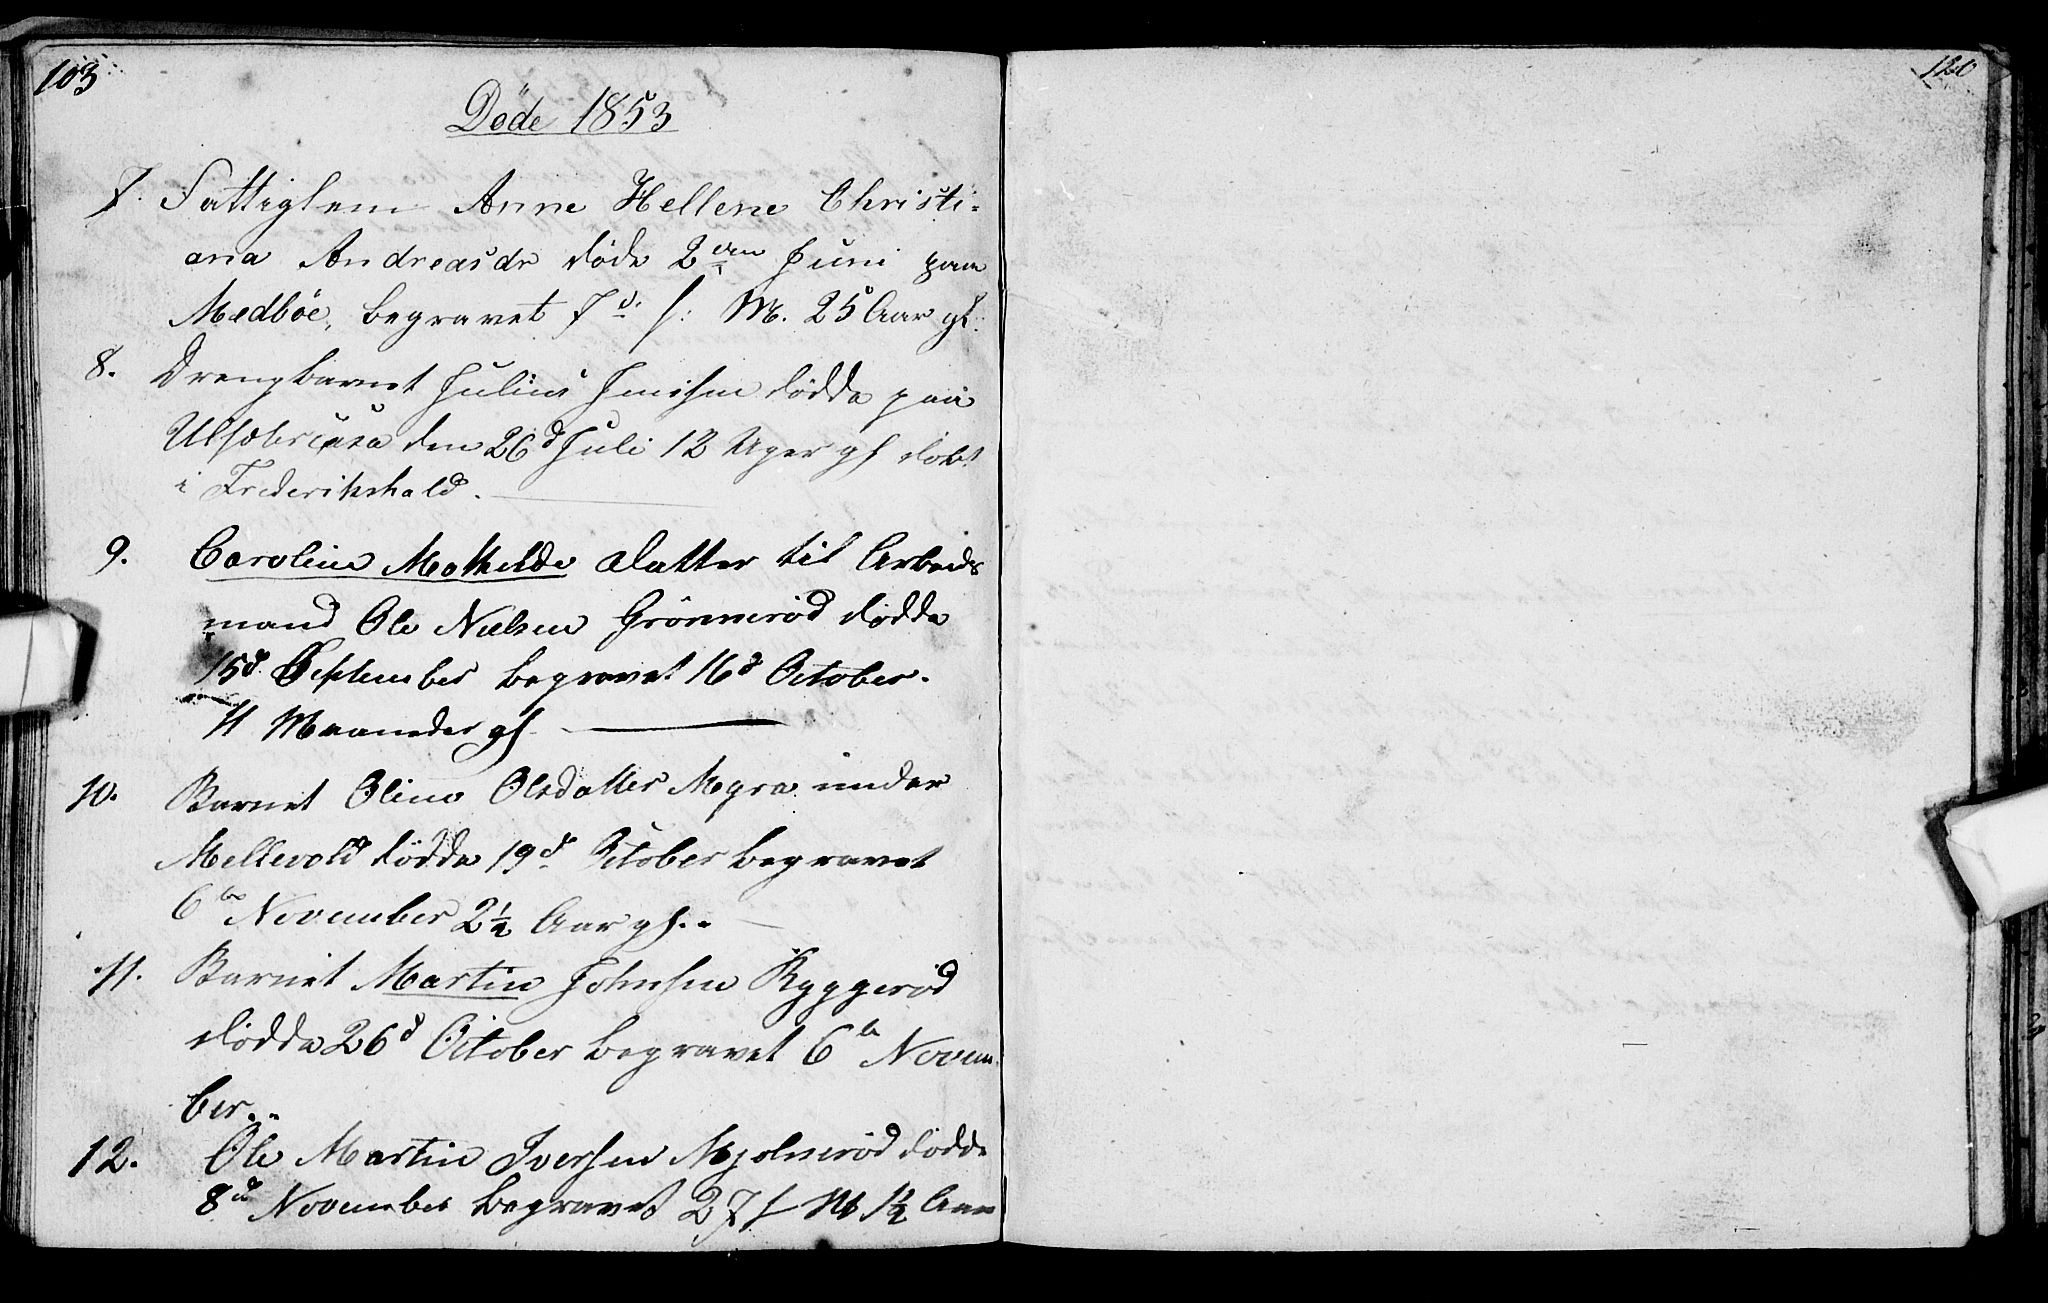 103
Døde 1853
7. Fattiglem Anne Hellene Christi=
ana Andreasdr døde 2den Juni paa
Medbøe, begravet 7d. s: M. 25 Aar gl.
8. Drengbarnet Julius Jensen dødde paa
den 26d Juli 12 Uger gl døbt
i Frederikshald.
9. Caroline Mathilde Datter til Arbeids
mand Ole Nielsen Grönnerød dødde
15d September begravet 16d October.
11 Maaneder gl.
10. Barnet Oline Olsdatter Myra under
Mellevold dødde 19d October begravet
6te November 2½ Aar gl..
11. Barnet Martin Johnsen Ryggerød
dødde 26d October begravet 6te Novem
ber..
12. Ole Martin Iversen Mjølnerød dødde
8d November begravet 27 s M 1½ Aar
120